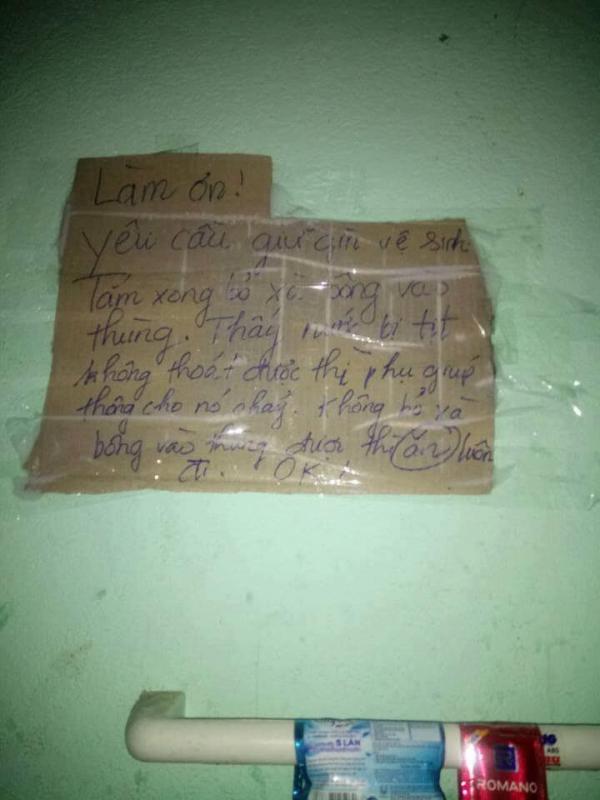 Làm ơn!
yêu cầu giữ gìn vệ sinh
Tắm xong bỏ xà bông vào
thùng. Thấy nước bị tịt
không thoát được thì phụ giúp
thông cho nó chảy. Không bỏ xà
bông vào thùng được thì (ăn) luôn
đi. OK!
5 LẦN
ROMANO
ABS